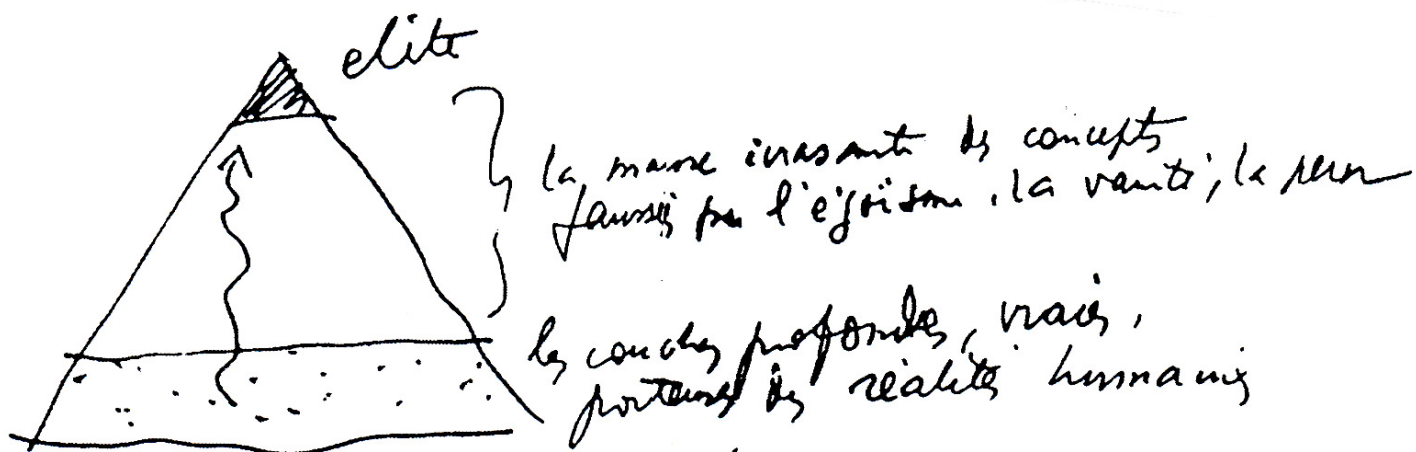 elite
la masse écrasante des concepts
faussés par l'égoïsme, la vanité, la
les couches profondes, vraies,
porteuses des réalités humaines